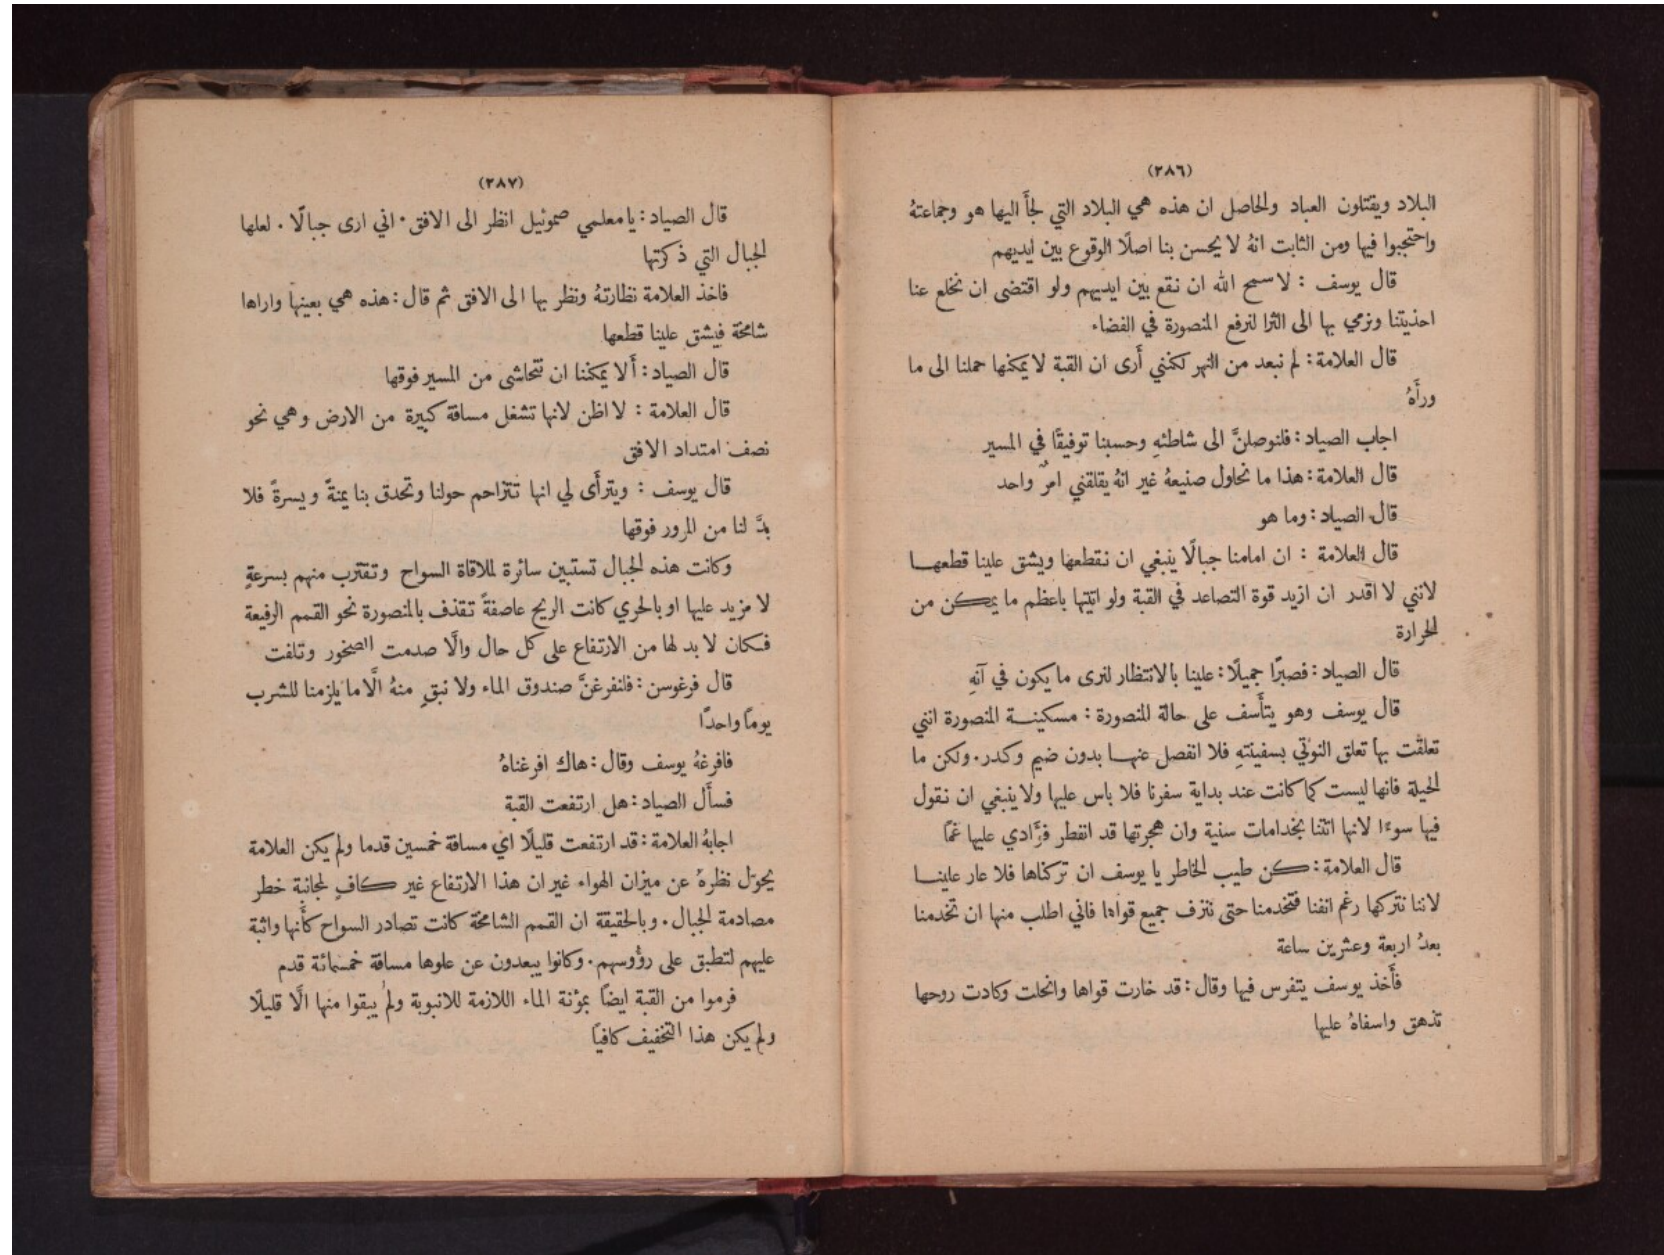 (٢٨٦)
البلاد ويقتلون العباد والحاصل ان هذه هي البلاد التي لجأ اليها هو وجماعتهُ
واحتجبوا فيها ومن الثابت انهُ لا يحسن بنا اصلًا الوقوع بين ايديهم
قال يوسف : لا سمح الله ان نقع بين ايديهم ولو اقتضى ان نخلع عنا
احذيتنا ونرمي بها الى الثرا لنرفع المنصورة في الفضاء
قال العلامة : لم نبعد من النهر لكنني أرى ان القبة لا يمكنها حملنا الى ما
ورأهُ
اجاب الصياد : فلنوصلنَّ الى شاطئهِ وحسبنا توفيقًا في المسير
قال العلامة : هذا ما نحاول صنيعهُ غير انهُ يقلقني امرٌ واحد
قال الصياد : وما هو
قال العلامة : ان امامنا جبالًا ينبغي ان نقطعها ويشق علينا قطعهـا
لانني لا اقدر ان ازيد قوة التصاعد في القبة ولو اتيتها باعظم ما يمكن من
الحرارة
قال الصياد : فصبرًا جميلًا : علينا بالانتظار لنرى ما يكون في آنهِ
قال يوسف وهو يتأسف على حالة المنصورة : مسكينـة المنصورة انني
تعلقت بها تعلق النوتي بسفينتهِ فلا انفصل عنهـا بدون ضيم وكدر. ولكن ما
الحيلة فانها ليست كما كانت عند بداية سفرنا فلا باس عليها ولا ينبغي ان نقول
فيها سوءًا لانها اتتنا بخدامات سنية وان هجرتها قد انفطر فؤادي عليها غمًا
قال العلامة : كن طيب الخاطر يا يوسف ان تركناها فلا عار علينـا
لاننا نتركها رغم انفنا فتخدمنا حتى تنزف جميع قواها فاني اطلب منها ان تخدمنا
بعدُ اربعة وعشرين ساعة
فأخذ يوسف يتفرس فيها وقال : قد خارت قواها وانحلت وكادت روحها
تذهق واسفاهُ عليها
(٢٨٧)
قال الصياد : يا معلمي صموئيل انظر الى الافق. اني ارى جبالًا. لعلها
الجبال التي ذكرتها
فاخذ العلامة نظارتهُ ونظر بها الى الافق ثم قال : هذه هي بعينها واراها
شامخة فيشق علينا قطعها
قال الصياد : ألا يمكننا ان نتحاشى من المسير فوقها
قال العلامة : لا اظن لانها تشغل مسافة كبيرة من الارض وهي نحو
نصف امتداد الافق
قال يوسف : ويترأى لي انها تتزاحم حولنا وتحدق بنا يمنةً ويسرةً فلا
بدَّ لنا من المرور فوقها
وكانت هذه الجبال تستبين سائرة لملاقاة السواح وتقترب منهم بسرعةٍ
لا مزيد عليها او بالحري كانت الريح عاصفةً تقذف بالمنصورة نحو القمم الرفيعة
فكان لا بد لها من الارتفاع على كل حال والَّا صدمت الصخور وتلفت
قال فرغوسن : فلنفرغنَّ صندوق الماء ولا نبقِ منهُ الَّا ما يلزمنا للشرب
يومًا واحدًا
فافرغهُ يوسف وقال : هاك افرغناهُ
فسأل الصياد : هل ارتفعت القبة
اجابهُ العلامة : قد ارتفعت قليلًا اي مسافة خمسين قدما ولم يكن العلامة
يحوّل نظرهُ عن ميزان الهواء غير ان هذا الارتفاع غير كافٍ لمجانبة خطر
مصادمة الجبال. وبالحقيقة ان القمم الشامخة كانت تصادر السواح كأنها واثبة
عليهم لتطبق على رؤوسهم. وكانوا يبعدون عن علوها مسافة خمسمائة قدم
فرموا من القبة ايضًا بمؤنة الماء اللازمة للانبوبة ولم يبقوا منها الَّا قليلًا
ولم يكن هذا التخفيف كافيًا